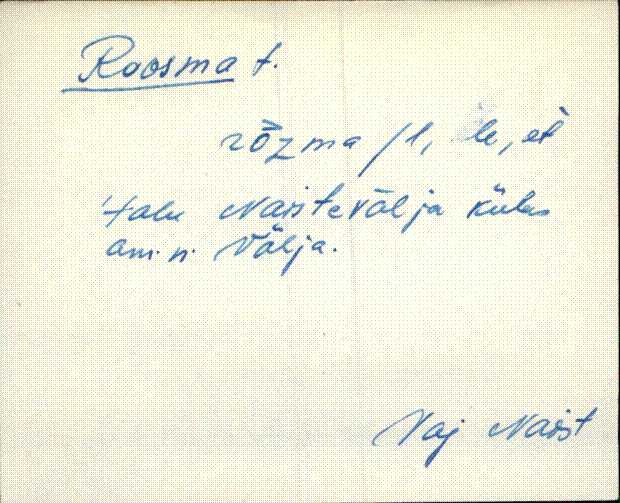 Roosma t.
rõzma /l, le, èt
talu Naistevälja külas
am. n. Välja.
Vaj Naist